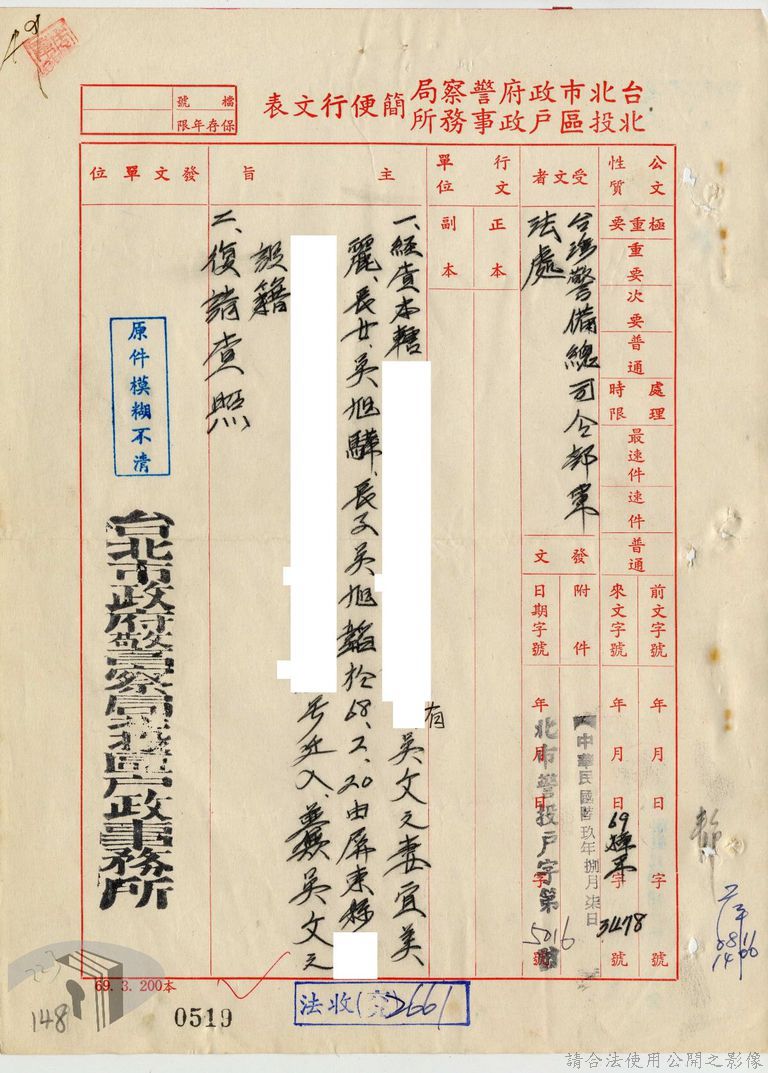 台北市政府警察局
北投區戶政事務所
簡便行文表
檔號
保存年限
公文性質
極重要
重要
次要
普通
處理時限
最速件
速件
普通
前文字號
年 月 日 字 號
來文字號
年 月 日 字 號
69
3478
受文者
台灣警備總司令部軍
法處
發文
附件
日期字號
中華民國陸玖年捌月柒日
年 月 日 字 號
北市警投戶字第
5016
行文單位
正本
副本
主旨
一、經查本轄
有吳文之妻宜美
麗、長女吳旭驊、長子吳旭韜於68.2.20由屏東縣
号遷入、並無吳文之
設籍
二、復請查照
發文單位
原件模糊不清
台北市政府警察局北投區戶政事務所
69. 3. 200本
0519
法收(交)2661
223
148
0811
1400
請合法使用公開之影像